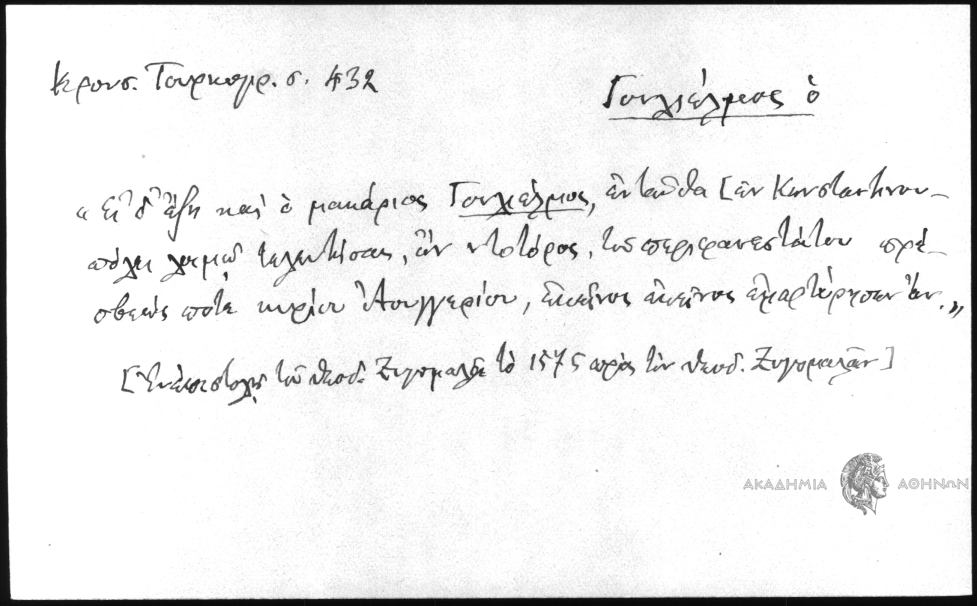 Κρουσ. Τουρκογρ. σ. 432
Γουλιέλμος ὁ
"Εἰ δ' ἔζη καὶ ὁ μακάριος Γουλιέλμος, ἐνταῦθα [ἐν Κωνσταντινου-
πόλει λοιμῷ τελευτήσας, ὢν ντοτόρος, τοῦ περιφανεστάτου πρέ-
σβεώς ποτε κυρίου Αουγγερίου, ἐκεῖνος ἐμαρτύρησεν ἄν."
[Ἐν ἐπιστολῇ τοῦ Θεοδ. Ζυγομαλᾶ τὸ 1575 πρὸς τὸν Θεοδ. Ζυγομαλᾶν]
ΑΚΑΔΗΜΙΑ ΑΘΗΝΩΝ